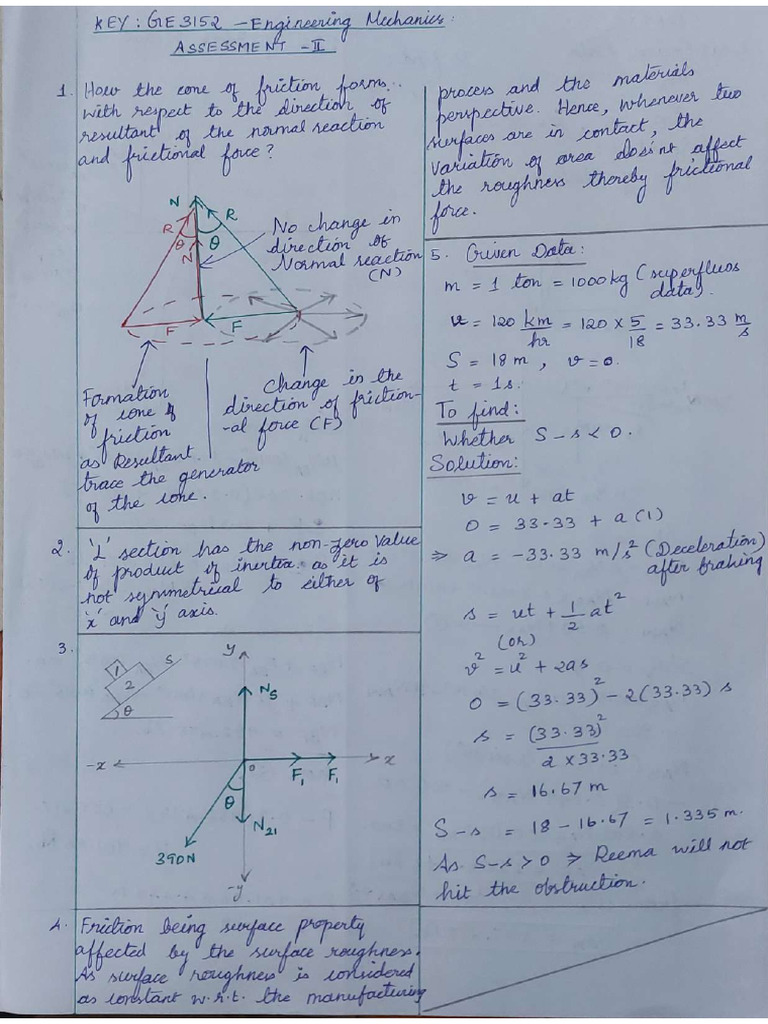 KEY: GE3152 – Engineering Mechanics:
ASSESSMENT – II
1. How the cone of friction forms..
with respect to the direction of
resultant of the normal reaction
and frictional force?
N
R
R
θ
θ
N
F
F
No change in
direction of
Normal reaction
(N)
Formation
of cone of
friction
as Resultant
trace the generator
of the cone.
Change in the
direction of friction-
-al force (F)
2. 'L' section has the non-zero value
of product of inertia. as it is
not symmetrical to either of
'x' and 'y' axis.
3.
1
2
S
θ
y
N_S
-x
0
x
F_1
F_1
θ
N_21
390N
-y
4. Friction being surface property
affected by the surface roughness.
As surface roughness is considered
as constant w.r.t. the manufacturing
process and the materials
perspective. Hence, whenever two
surfaces are in contact, the
variation of area doesn't affect
the roughness thereby frictional
force.
5. Given Data:
m = 1 ton = 1000kg (superfluos
data).
u = 120 km/hr = 120 × 5/18 = 33.33 m/s
S = 18m, v = 0.
t = 1s.
To find:
Whether S-s < 0.
Solution:
v = u + at
0 = 33.33 + a(1)
⇒ a = -33.33 m/s² (Deceleration)
after braking
s = ut + 1/2 at²
(or)
v² = u² + 2as
0 = (33.33)² - 2(33.33) s
s = (33.33)²/2×33.33
s = 16.67 m
S-s = 18 - 16.67 = 1.335 m.
As S-s > 0 ⇒ Reema will not
hit the obstruction.